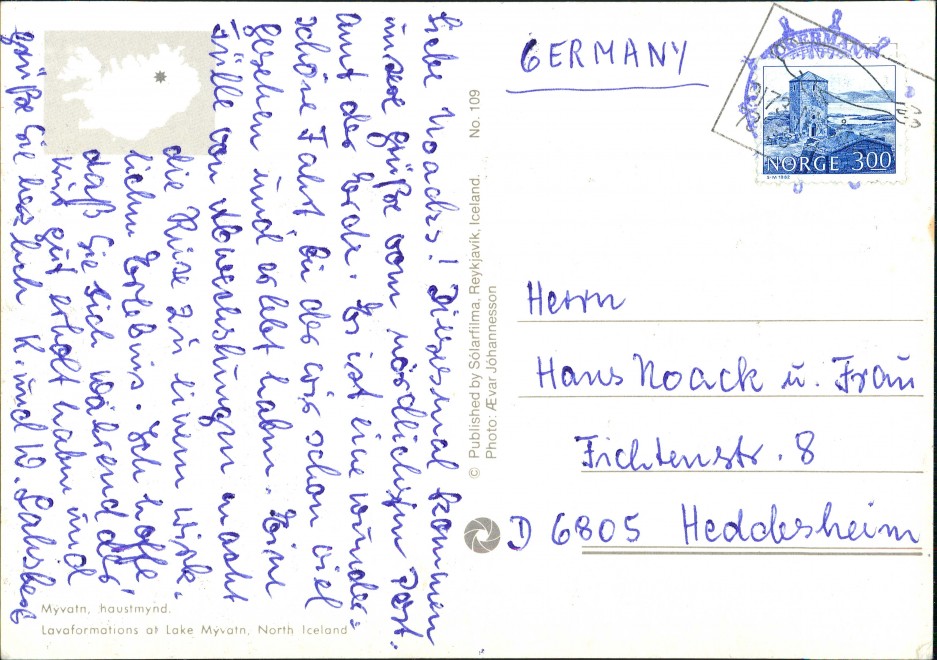 Liebe Noacks! Diesesmal kommen
unsere Grüße vom nördlichsten Post-
amt der Erde. Es ist eine wunder-
schöne Fahrt, bei der wir schon viel
gesehen und erlebt haben. Eine
Fülle von Abwechslungen macht
die Reise zu einem wirk-
lichen Erlebnis. Ich hoffe,
daß Sie sich während der
Kur gut erholt haben und
grüße Sie herzlich K. und W.
GERMANY
NORGE 300
Herrn
Hans Noack u. Frau
Fichtenstr. 8
D 6805 Heddesheim
© Published by Sólarfilma, Reykjavík, Iceland. No. 109
Photo: Ævar Jóhannesson
Mývatn, haustmynd.
Lavaformations at Lake Mývatn, North Iceland